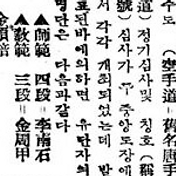 수도 (空手道=舊名唐手
道) 정기심사및 칭호 (稱
號) 심사가 중앙도장에
서 각각 개최되었는데 발
표된바에의하면 유단자의
명단은 다음과갈다
▲師範 四段=李南石
▲敎範 三段=金周甲